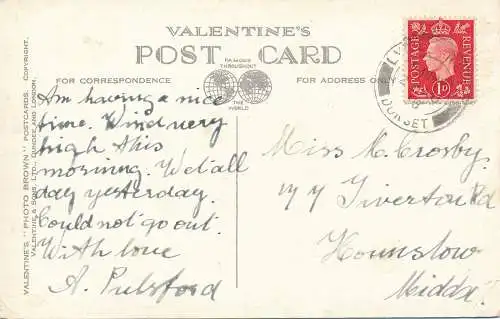 VALENTINE'S
POST CARD
FAMOUS
THROUGHOUT
THE
WORLD
FOR CORRESPONDENCE
FOR ADDRESS ONLY
Am having a nice
time. Wind very
high this
morning. Wet all
day yesterday.
Could not go out.
With love
A. Pulsford
Miss K. Crosby.
177 Tiverton Rd
Hounslow
Middx.
POSTAGE
REVENUE
1D
DORSET
VALENTINE'S "PHOTO BROWN" POSTCARDS. COPYRIGHT.
VALENTINE & SONS, LTD., DUNDEE AND LONDON.